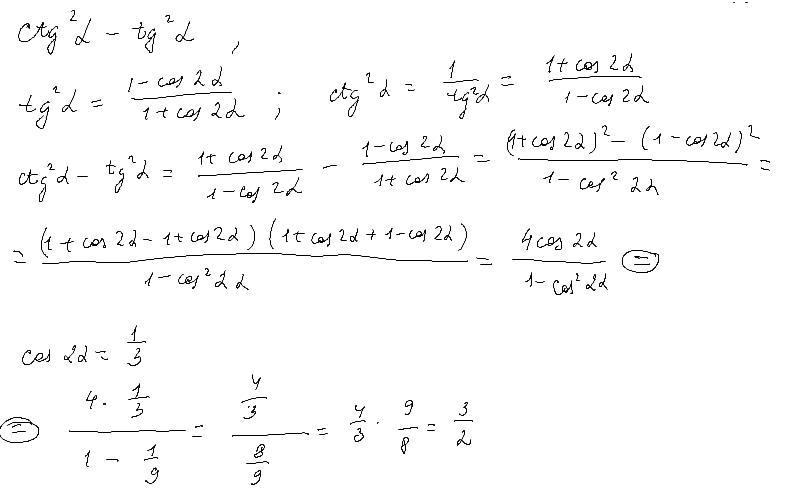 ctg²α − tg²α ,
tg²α = (1 − cos 2α)/(1 + cos 2α) ; ctg²α = 1/(tg²α) = (1 + cos 2α)/(1 − cos 2α)
ctg²α − tg²α = (1 + cos 2α)/(1 − cos 2α) − (1 − cos 2α)/(1 + cos 2α) = ((1 + cos 2α)² − (1 − cos 2α)²)/(1 − cos² 2α) =
= ((1 + cos 2α − 1 + cos 2α)(1 + cos 2α + 1 − cos 2α))/(1 − cos² 2α) = (4 cos 2α)/(1 − cos² 2α) ⊜
cos 2α = 1/3
⊜ (4 · 1/3)/(1 − 1/9) = (4/3)/(8/9) = 4/3 · 9/8 = 3/2